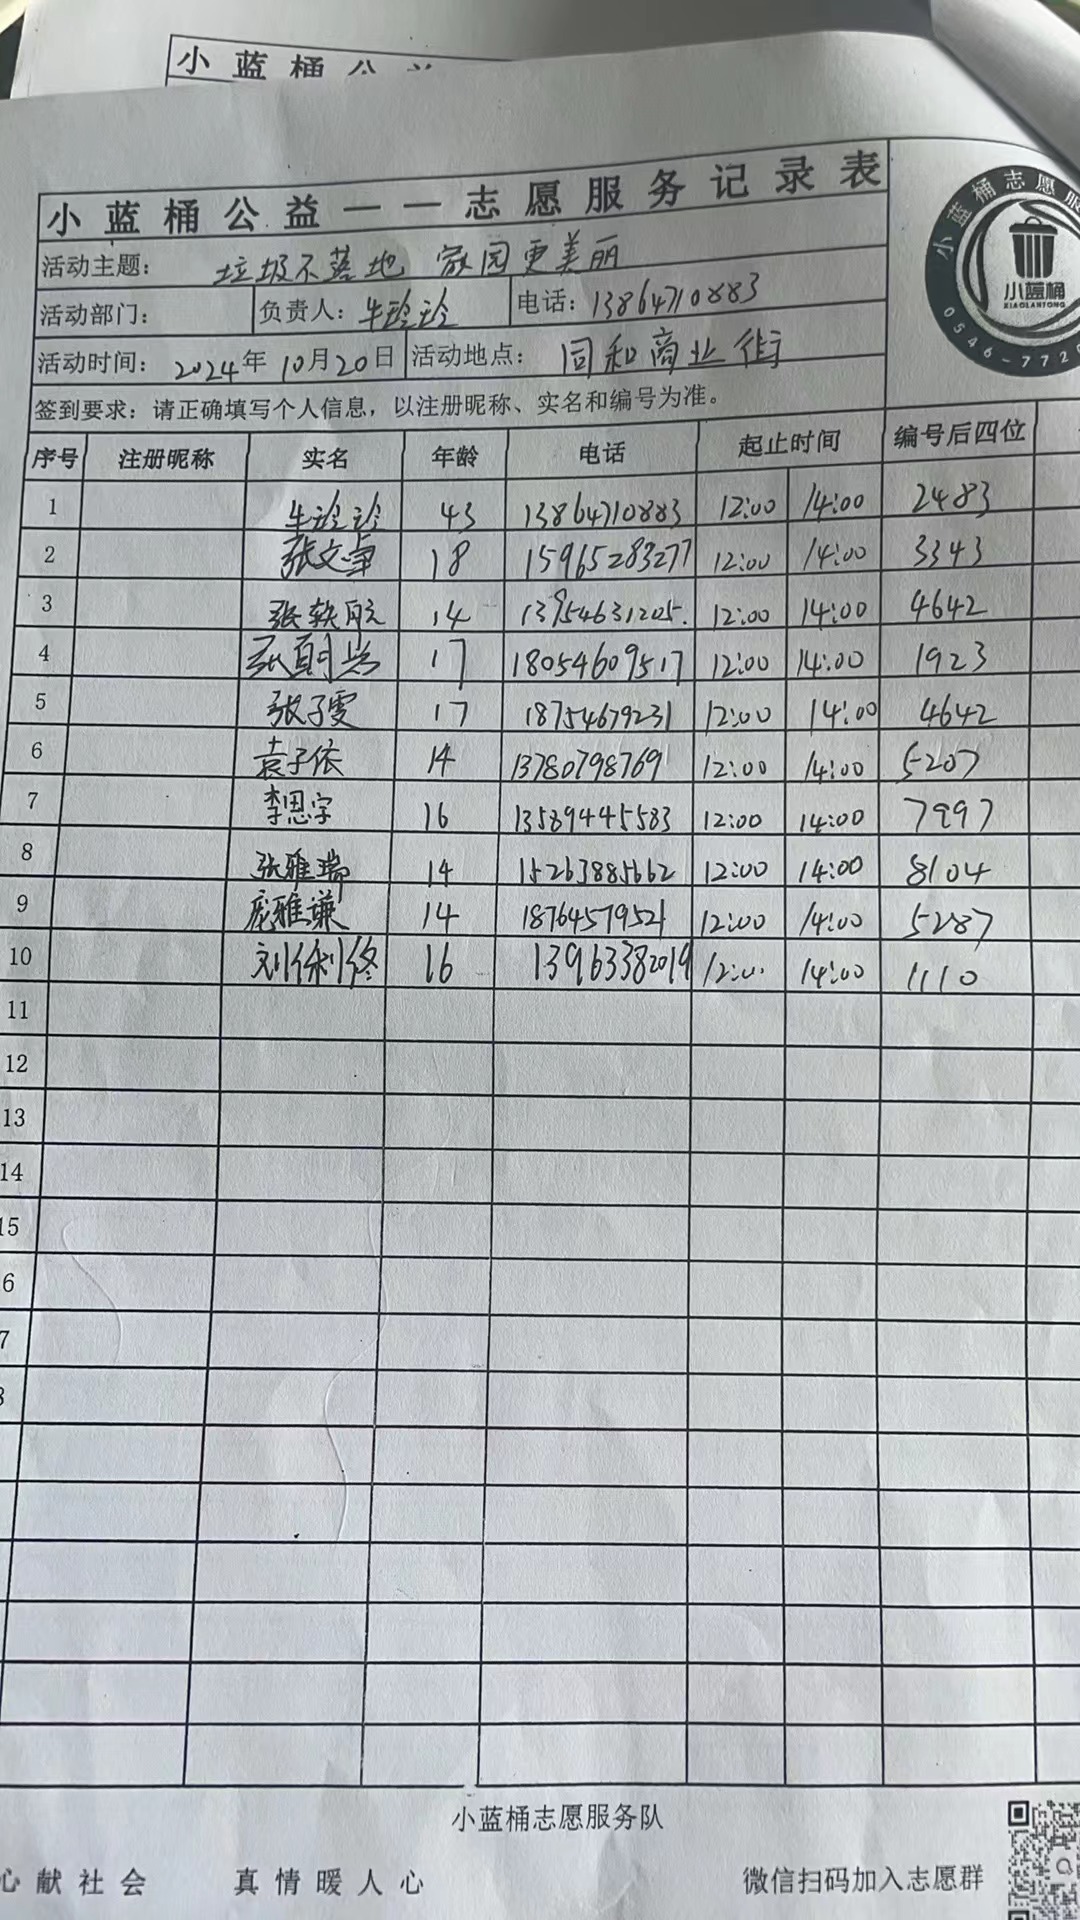 小蓝桶公
小蓝桶公益——志愿服务记录表
活动主题： 垃圾不落地 家园更美丽
活动部门： 负责人：牛玲玲 电话：13864710883
活动时间：2024年10月20日 活动地点： 同和商业街
签到要求：请正确填写个人信息，以注册昵称、实名和编号为准。
序号 注册昵称 实名 年龄 电话 起止时间 编号后四位
1 牛玲玲 43 13864710883 12:00 14:00 2483
2 张文卓 18 15965283277 12:00 14:00 3343
3 张轶航 14 13954631205. 12:00 14:00 4642
4 17 18054609517 12:00 14:00 1923
5 张子雯 17 18754679231 12:00 14:00 4642
6 袁子依 14 13780798769 12:00 14:00 5207
7 李恩宇 16 13589445583 12:00 14:00 7997
8 张雅瑞 14 15263885662 12:00 14:00 8104
9 庞雅谦 14 18764579521 12:00 14:00 5287
10 16 13963382019 12:00 14:00 1110
11
12
13
14
15
6
7
小蓝桶志愿服
小蓝桶
XIAOLANTONG
0546-772
小蓝桶志愿服务队
心献社会 真情暖人心 微信扫码加入志愿群